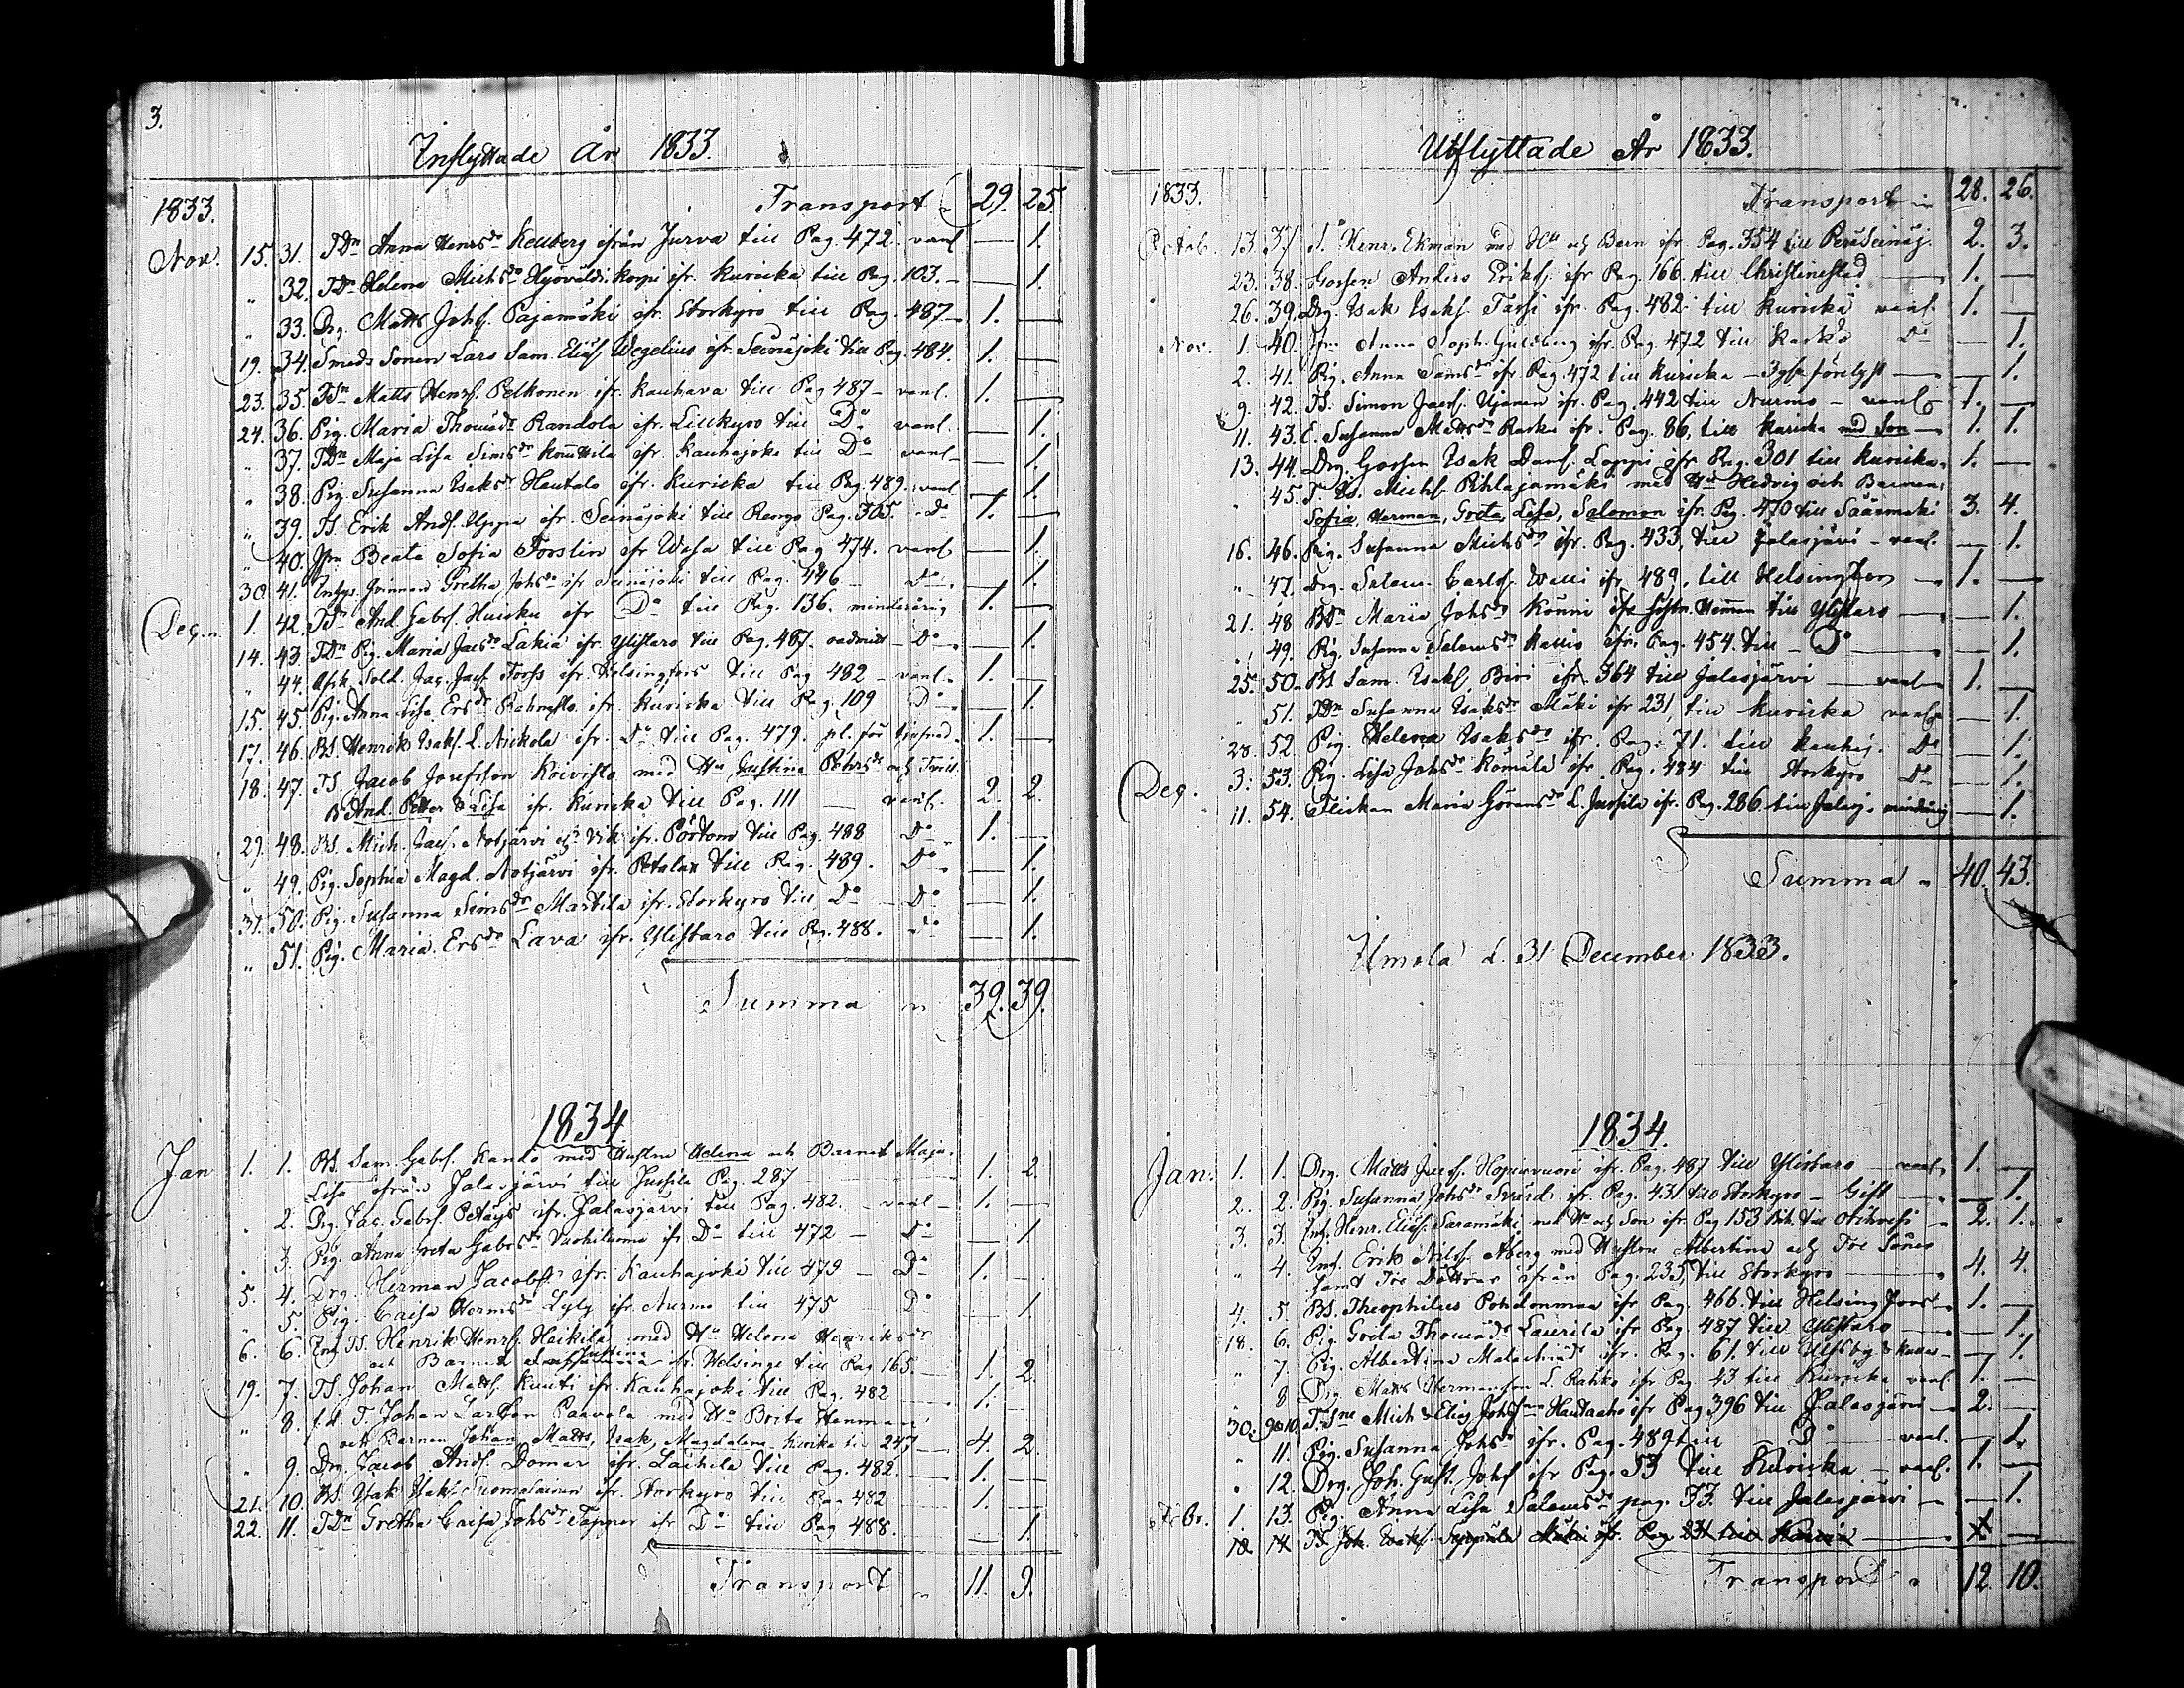 3.
Inflyttade År 1833.
1833. Transport 29. 25.
Nov. 15. 31. TDn Anna Henrsdr Kellberg ifrån Jurva till Pag. 472. vanl — 1.
" 32. TDn Helena Michsdr Hyövälti ifr. Kuricka till Pag. 103. — 1.
" 33. Drg. Matts Johs. Pajamäki ifr. Storkyro till Pag. 487 1. —
19. 34. Smeds Sonen Lars Sam. Eliæs. Wegelius ifr. Seinäjoki till Pag. 484. 1. —
23. 35. Matts Henrs. Pelkonen ifr. Kauhava till Pag 487 vanl. 1. —
24. 36. Pig. Maria Thomædr Randola ifr. Lillkyro till Do vanl. — 1.
" 37. TDn Maja Lisa Simsdr ifr. Kauhajoki till Do vanl. — 1.
" 38. Pig. Susanna Isaksdr Hautala ifr. Kuricka till Pag. 489. vanl — 1.
" 39. TS. Erik Ands. Uppa ifr. Seinäjoki till Rengo Pag. 305. Do 1. —
" 40. Jfrn Beata Sofia Forslin ifr Wasa till Pag 474. vanl — 1.
30. 41. Inhys. Qvinnan Gretha Johsdr ifr Seinäjoki till Pag. 446 Do — 1.
Dec. 1. 42. And. Gabrs. Huisku ifr Do till Pag. 136. minderårig 1. —
14. 43. TDn Pig. Maria Jacsdr Lakia ifr. Ylistaro till Pag. 487. oadmitt Do — 1.
" 44. Afsk. Sold. Jac. Jacs. Forss ifr. Helsingfors till Pag 482 vanl. 1. —
15. 45. Pig. Anna Lisa Ersdr ifr. Kuricka till Pag. 109 Do — 1.
17. 46. BS. Henrik Isaks. L. Nickola ifr. Do till Pag. 479. 1. —
18. 47. TS. Jacob Josefsson Koivisto med Hu Justina Pehrsdr och Tvill.
B. And. Petter & Lisa ifr. Kuricka till Pag. 111 — vanl. 2. 2.
29. 48. BS. Mich. Jacs. Notjärvi ifr. Pörtom till Pag. 488 Do 1. —
" 49. Pig. Sophia Magd. Notjärvi ifr. Petalax till Pag. 489. Do — 1.
31. 50. Pig. Susanna Simsdr Martila ifr. Storkyro till Do Do — 1.
" 51. Pig. Maria Ersdr Lava ifr. Ylistaro till Pag. 488. Do — 1.
Summa 39. 39.
1834
Jan 1. 1. BS. Sam. Gabrs. Kando med Hustru Helena och Barnet Maja
Lisa ifrån Jalasjärvi till Jussila Pag. 287 1. 2.
2. Drg. Jac. Gabrs. Petäys ifr. Jalasjärvi till Pag. 482. vanl 1. —
3. Pig. Anna Greta Gabrsdr ifr Do till 472 Do — 1
5. 4. Drg. Herman Jacobs. ifr. Kauhajoki till 479 Do 1. —
" 5. Pig. Caisa Hermsdr Lyly ifr. Nurmo till 475 Do — 1
6. 6. Inh TS. Henrik Henrs. Heikilä med Hu Helena Henriksdr
och Barnet Justina ifr. Helsinge till Pag 165. 1. 2.
19. 7. TS. Johan Matts. Kuuti ifr. Kauhajoki till Pag. 482 1. —
" 8. f.d. T. Johan Larsson Paavola med Hu Brita Henman
och Barnen Johan, Matts, Isak, Magdalena Kuricka till 247 4. 2.
" 9. Drg. Jacob Ands. Domar ifr. Laihela till Pag. 482. 1. —
21. 10. BS. Isak Isaks. Suomalainen ifr. Storkyro till Pag 482 1. —
22. 11. TDn Gretha Caisa Johsdr Tapper ifr Do till Pag 488. — 1.
Transport 11. 9.
Utflyttade År 1833.
1833. Transport 28. 26.
Octob. 13. 37 Henr. Ekman med Hu och Barn ifr. Pag. 354 till Peräseinäj. 2. 3.
23. 38. Gossen Anders Eriks. ifr Pag. 166 till Christinestad 1. —
26. 39. Drg. Isak Isaks. Tassi ifr. Pag. 482 till Kuricka vanl. 1. —
Nov. 1. 40. Jfrn Anna Soph. Guldberg ifr. Pag. 472 till Kaskö Do — 1.
2. 41. Pig. Anna Samsdr ifr Pag. 472 till Kuricka — 3 gr förlyst — 1.
9. 42. TS. Simon Jacs. Ujanen ifr. Pag. 442 till Nurmo vanl 1. —
11. 43. E. Susanna Mattsdr ifr. Pag. 86, till Kuricka med Son 1. 1.
13. 44. Drg. Gossen Isak Dans. Loppi ifr Pag. 301 till Kuricka 1. —
" 45. Michs. Pihlajamäki med Hu Hedvig och Barnen
Sofia, Herman, Greta, Lisa, Salomon ifr. Pag. 470 till Säärmäki 3. 4.
16. 46. Pig. Susanna Michsdr ifr. Pag. 433, till Jalasjärvi vanl. — 1.
" 47. Drg. Salom. Carls. Welli ifr 489, till Helsingfors 1. —
21. 48 BDn Maria Johsdr Könni till Ylistaro — 1.
" 49. Pig. Susanna Salomsdr Kallio ifr. Pag. 454 till Do — 1.
25. 50. BS Sam. Isaks. Biri ifr 364 till Jalasjärvi vanl 1. —
" 51. TDn Susanna Isaksdr Mäki ifr 231, till Kuricka vanl — 1.
28. 52. Pig. Helena Isaksdr ifr. Pag. 71. till Kauhaj. Do — 1.
Dec. 3. 53. Pig. Lisa Johsdr Komula ifr Pag. 484 till Storkyro Do — 1.
11. 54. Flickan Maria Göransdr L. Jussila ifr. Pag. 286. till Jalasj. minderårig — 1.
Summa 40. 43.
Ilmola d. 31 December 1833.
1834.
Jan: 1. 1. Drg. Matts Jacs. Hopiavuori ifr. Pag. 487 till Ylistaro vanl 1. —
2. 2. Pig. Susanna Johsdr Svärd ifr. Pag. 431 till Storkyro — Gift — 1.
3. 3. Inh. Henr. Eliæs. Saramäki med Hu och Son ifr. Pag 153 till 2. 1.
" 4. Inh. Erik Nilss. Åberg med Hustru Albertina och Tre Söner
samt Tre Döttrar ifrån Pag. 235, till Storkyro 4. 4.
4. 5 BS. Theophilus Pohdonmaa ifr Pag. 466. till Helsingfors 1. —
18. 6. Pig Greta Thomædr Laurila ifr Pag. 487 till Ylistaro — 1.
" 7. Pig. Albertina Malachiædr ifr. Pag. 61. till Ulfsby — 1.
" 8 Drg. Matts Hermansson L. Rahko ifr Pag. 43 till Kuricka vanl. 1. —
30. 9 & 10. TSne Mich & Elias Johs. Hautaaho ifr Pag 396 till Jalasjärvi 2. —
" 11. Pig. Susanna Johsdr ifr. Pag. 489 till Do vanl. — 1.
" 12. Drg. Joh. Gust. Johs ifr Pag. 53 till Kuricka vanl. 1. —
Febr. 1 13. Pig. Anna Lisa Salomsdr pag. 33. till Jalasjärvi — 1.
18 14 TS Joh. Isaks. ifr. Pag. 231 till 1 —
Transport 12. 10.